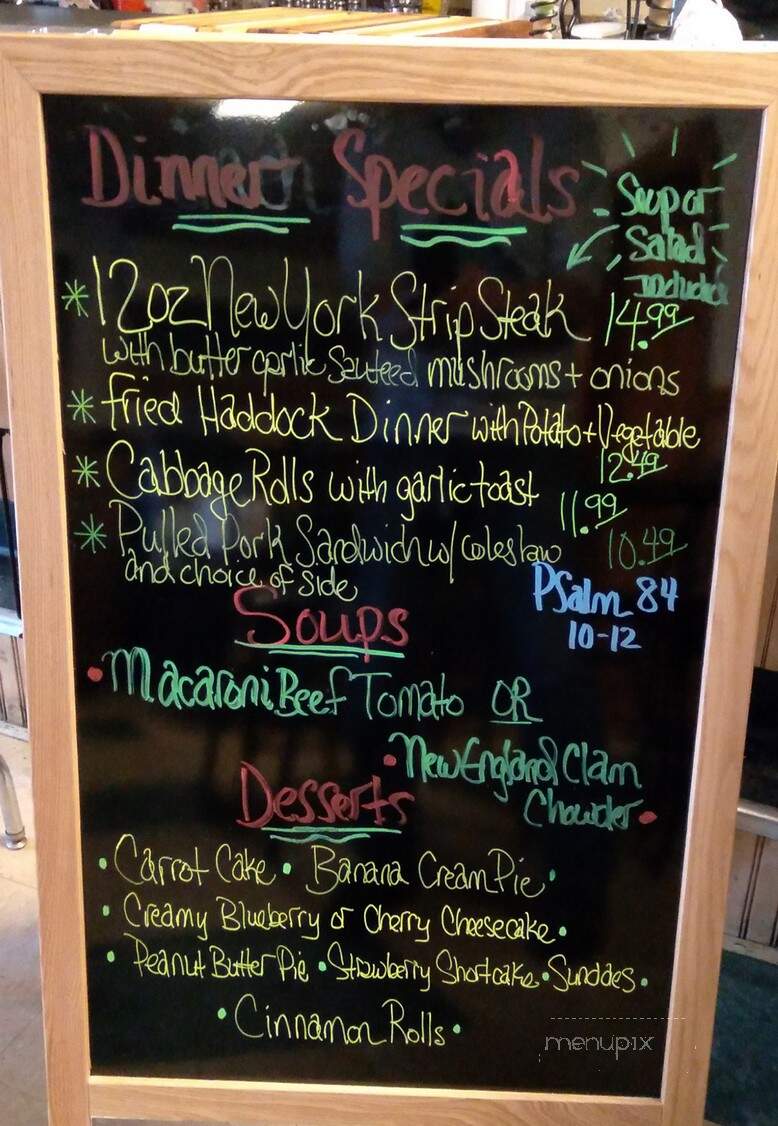 Dinner Specials
Soup or
Salad
Included
* 12oz New York Strip Steak 14.99
with butter garlic Sauteed mushrooms + onions
* Fried Haddock Dinner with Potato + Vegetable
12.49
* Cabbage Rolls with garlic toast 11.99
* Pulled Pork Sandwich w/ coleslaw 10.49
and choice of side
Psalm 84
10-12
Soups
• Macaroni Beef Tomato OR
• New England Clam
Chowder •
Desserts
• Carrot Cake • Banana Cream Pie •
• Creamy Blueberry or Cherry Cheesecake •
• Peanut Butter Pie • Strawberry Shortcake • Sundaes •
• Cinnamon Rolls •
menupix